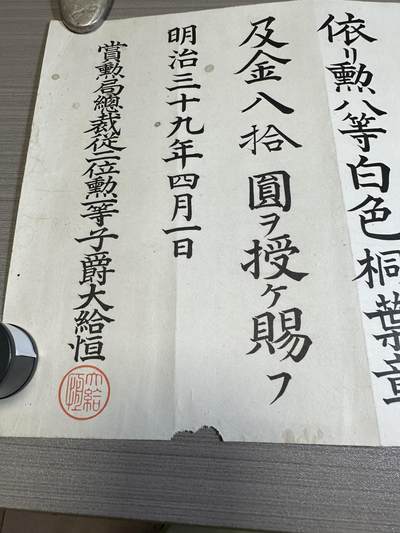 依リ勲八等白色桐葉章
及金八拾圓ヲ授ケ賜フ
明治三十九年四月一日
賞勲局總裁從二位勲一等子爵大給恒
大給恒